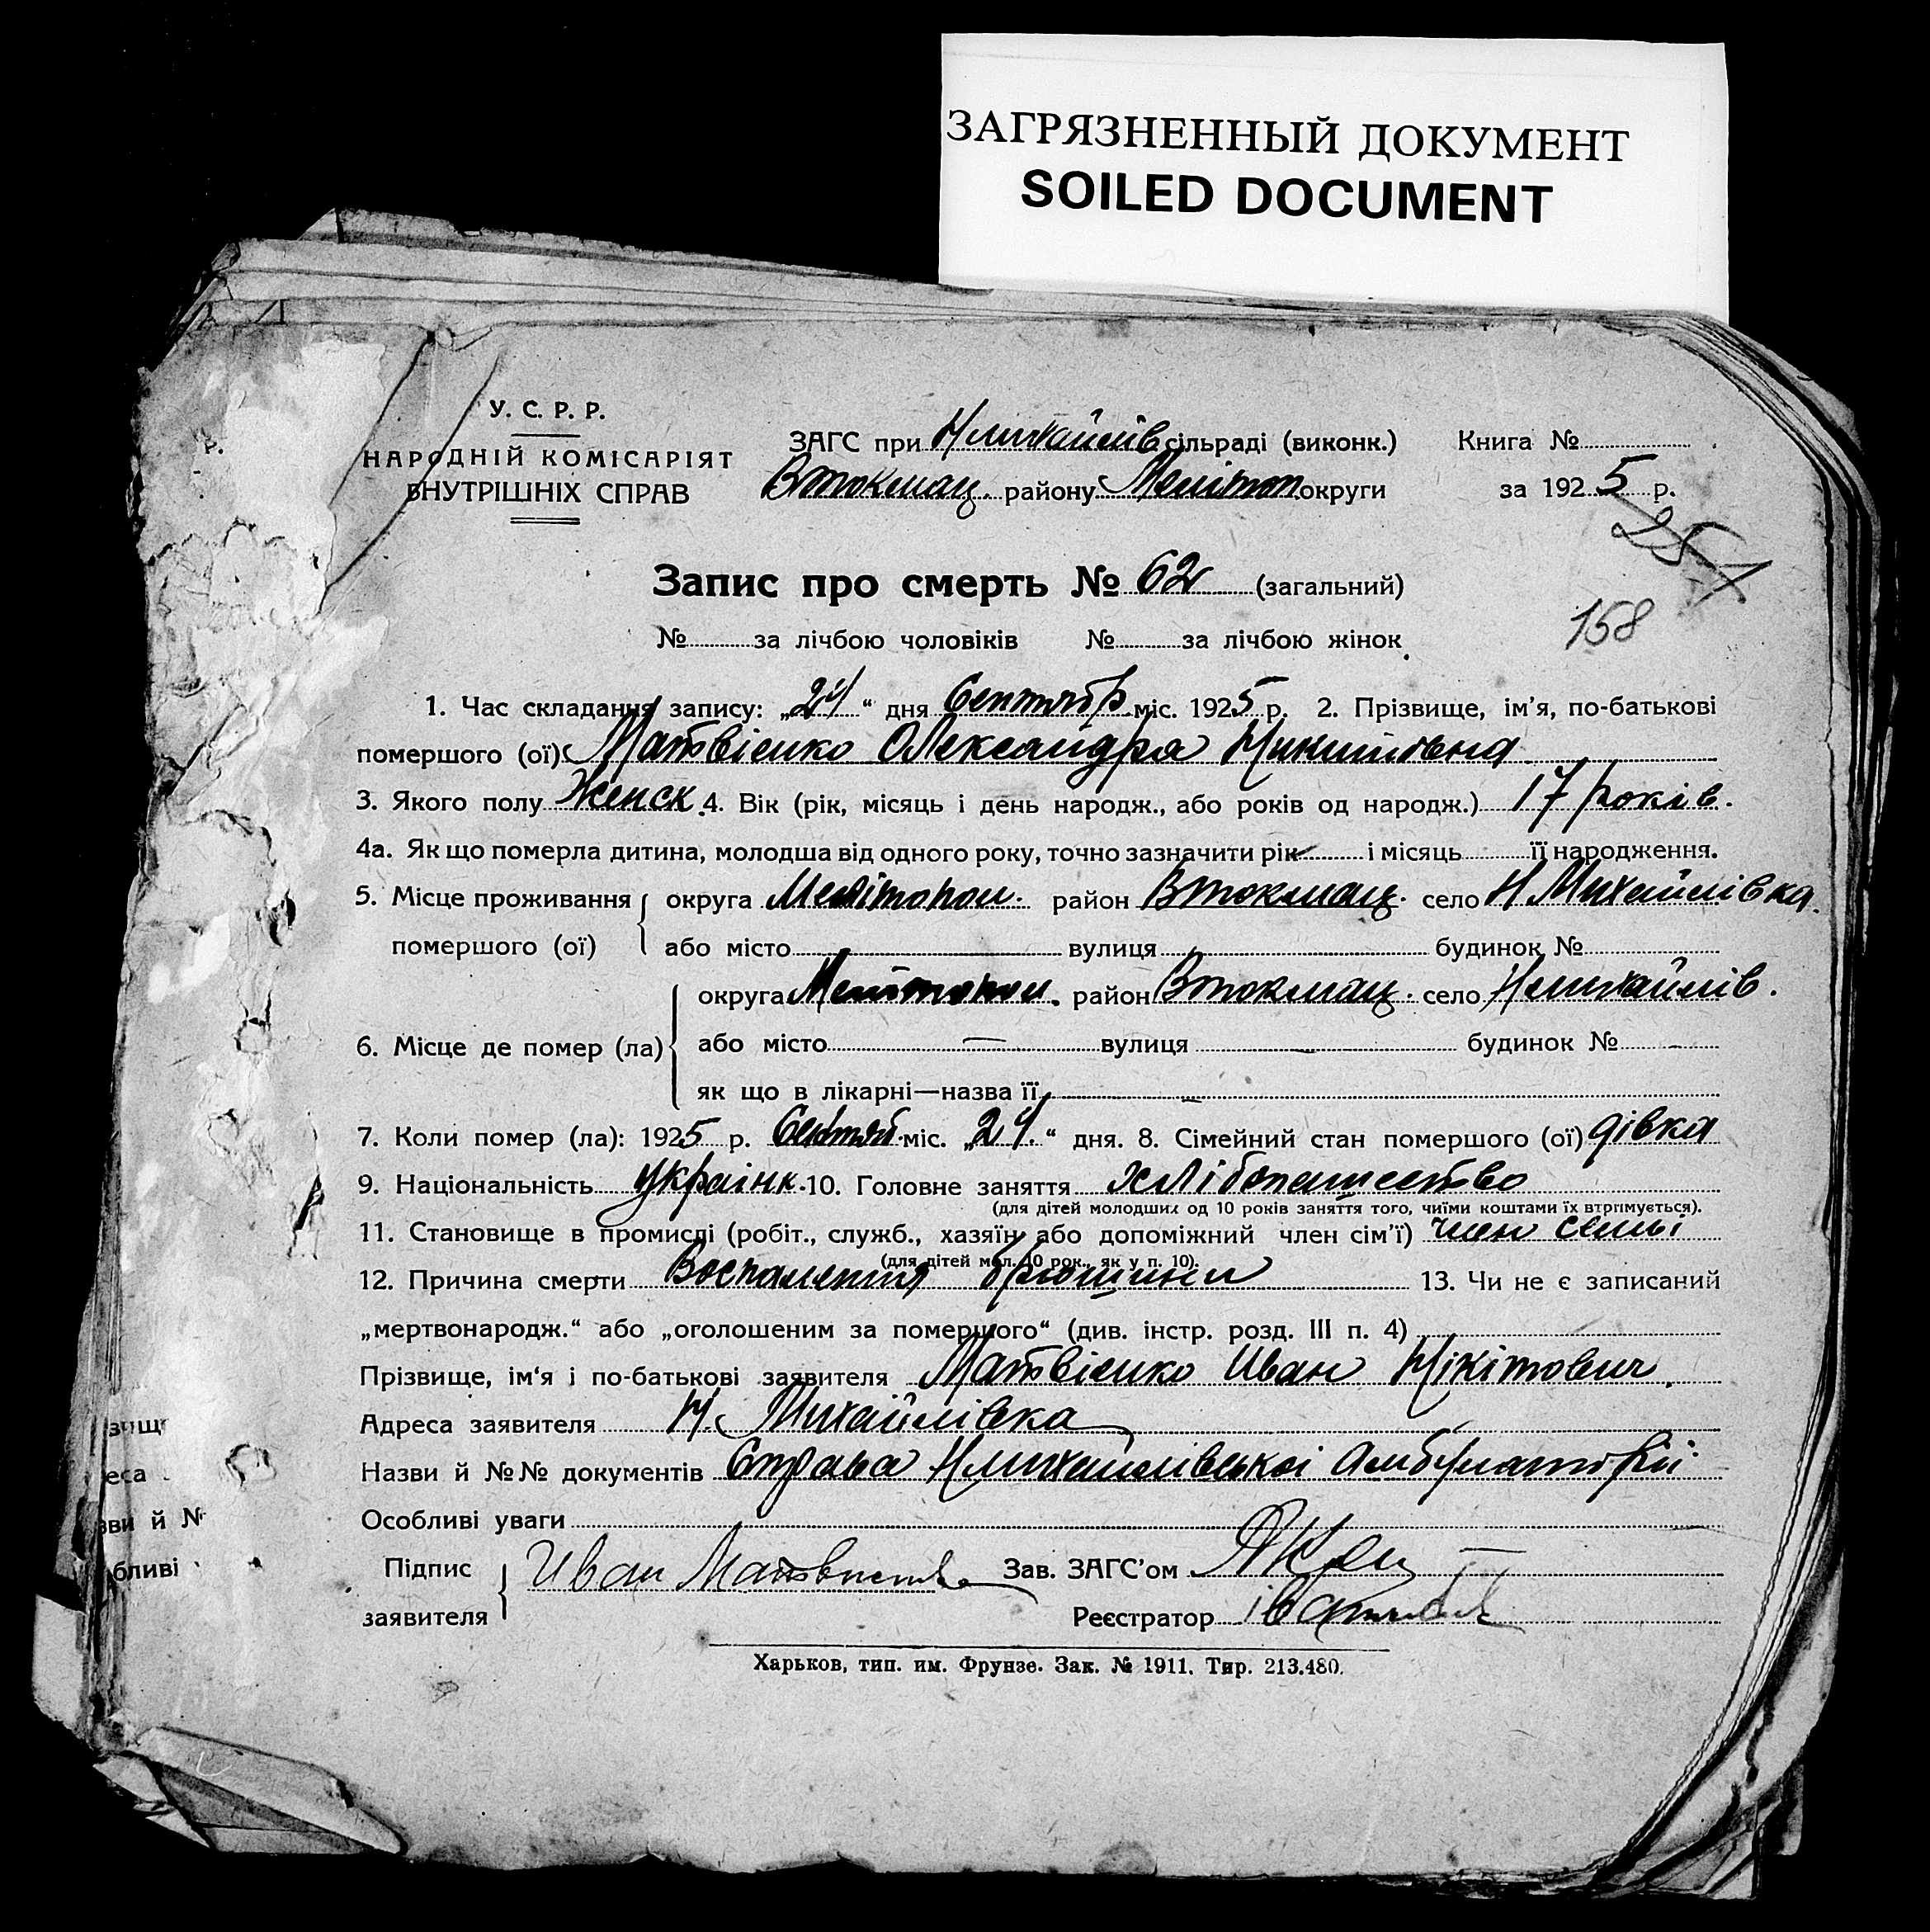 ЗАГРЯЗНЕННЫЙ ДОКУМЕНТ
SOILED DOCUMENT
У. С. Р. Р.
НАРОДНІЙ КОМІСАРІЯТ
ВНУТРІШНІХ СПРАВ
ЗАГС при Н Михайлів сільраді (виконк.) Книга №
Втокмац. району Мелітоп округи за 1925 р.
251
Запис про смерть № 62 (загальний)
158
№ за лічбою чоловіків № за лічбою жінок
1. Час складання запису: „24“ дня Сентябр міс. 1925 р. 2. Прізвище, ім'я, по-батькові
помершого (ої) Матвіенко Олександра Никитовна
3. Якого полу Женск. 4. Вік (рік, місяць і день народж., або років од народж.) 17 років.
4а. Як що померла дитина, молодша від одного року, точно зазначити рік і місяць її народження.
5. Місце проживання округа Мелітопол. район Втокмац. село Н Михайлівка.
помершого (ої) або місто вулиця будинок №
округа Мелітопол. район Втокмац. село Н Михайлів.
6. Місце де помер (ла) або місто — вулиця — будинок № —
як що в лікарні—назва її —
7. Коли помер (ла): 1925 р. Сентяб. міс. „24.“ дня. 8. Сімейний стан помершого (ої) дівка
9. Національність украінк. 10. Головне заняття хлібопашество
(для дітей молодших од 10 років заняття того, чиїми коштами їх втримується).
11. Становище в промислі (робіт., служб., хазяїн або допоміжний член сім'ї) член семьі
(для дітей мол. 10 рок., як у п. 10).
12. Причина смерти Воспаления брюшини 13. Чи не є записаний
„мертвонародж.“ або „оголошеним за помершого“ (див. інстр. розд. III п. 4)
Прізвище, ім'я і по-батькові заявителя Матвіенко Иван Нікітович.
Адреса заявителя Н. Михайлівка
Назви й №№ документів Справа Н Михайлівськоі Амбулаторіі
Особливі уваги
Підпис Иван Зав. ЗАГС'ом
заявителя Реєстратор
Харьков, тип. им. Фрунзе. Зак. № 1911. Тир. 213.480.